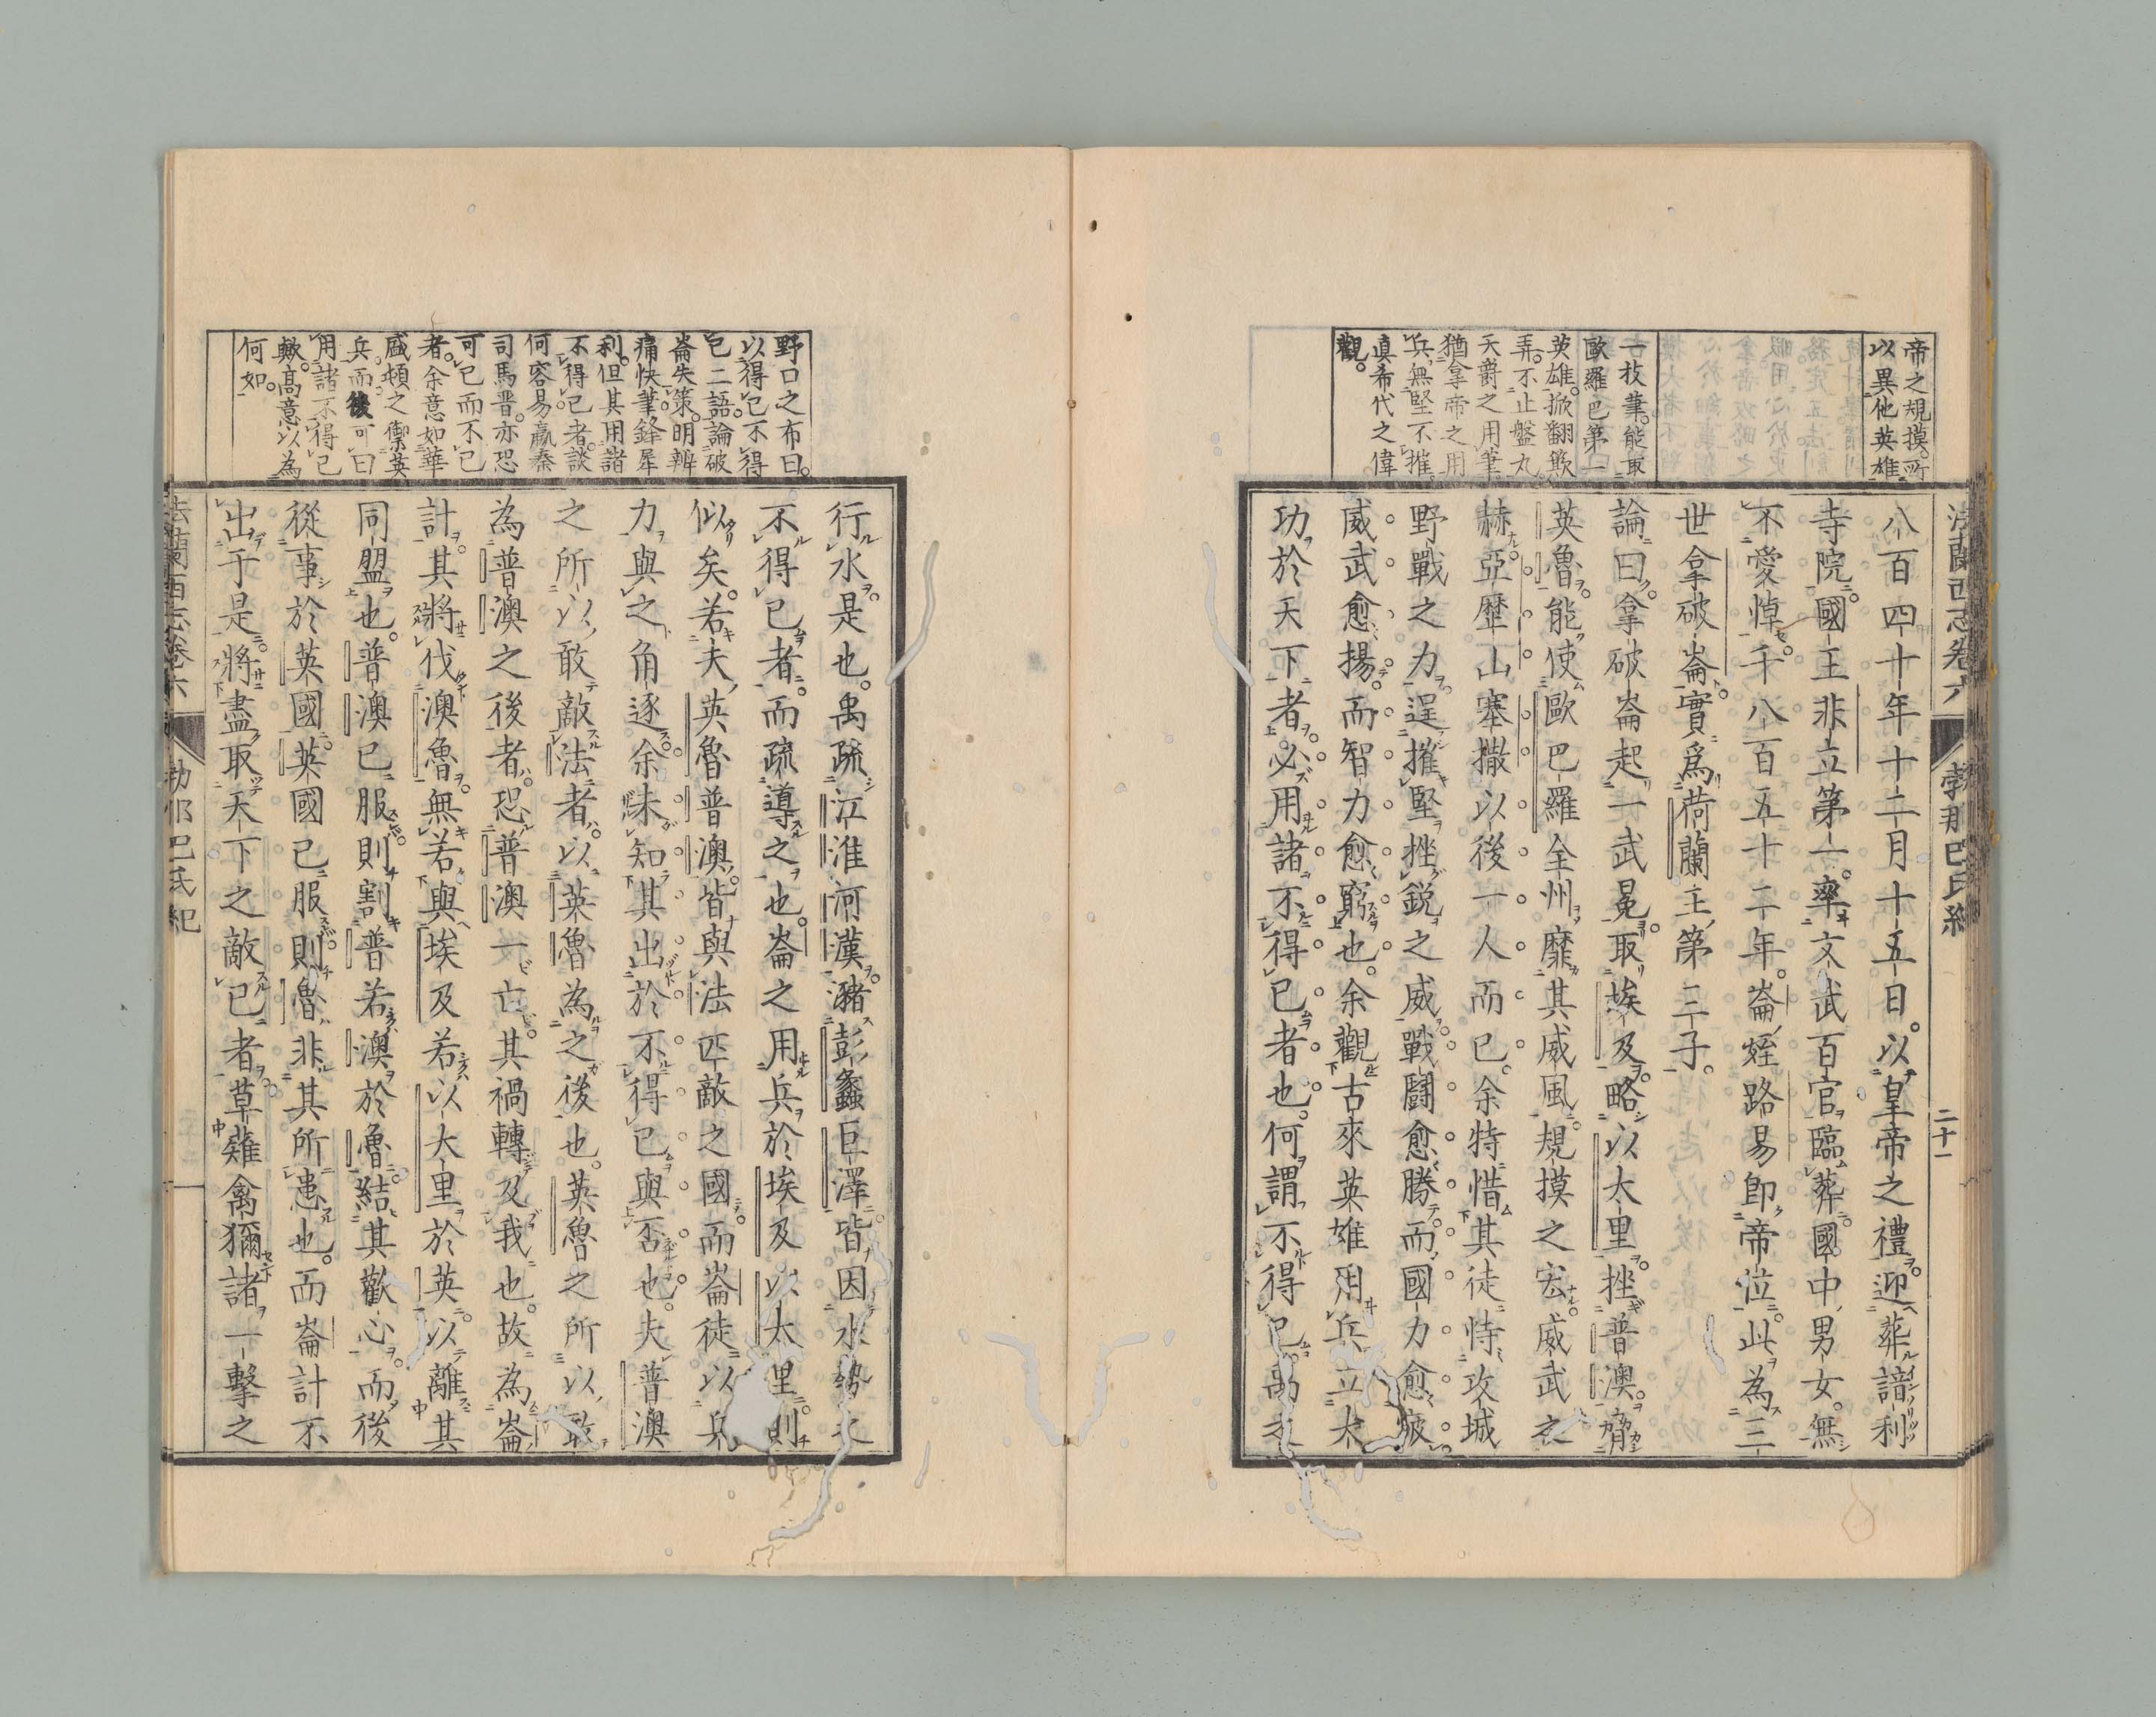 帝之規摸。所
以異他英雄
一枝筆。能取
歐羅巴第一
英雄。掀翻簸
弄。不止盤丸
天爵之用筆
猶拿帝之用
兵。無堅不摧。
眞希代之偉
觀。
法蘭西志卷六 勃那巴氏紀 二十一
八百四十年十二月十五日。以皇帝之禮。迎葬諳利
寺院。國王非立第一。率文武百官。臨葬。國中男女。無
不愛悼。千八百五十二年。崙姪路易卽帝位。此為三
世拿破崙。實爲荷蘭主第三子。
論曰。拿破崙起一武冕。取埃及。略以太里。挫普澳。脅
英魯。能使歐巴羅全州。靡其威風。規摸之宏。威武之
赫。亞歷山塞撒以後一人而已。余特惜其徒恃攻城
野戰之力。逞摧堅挫鋭之威。戰鬪愈勝。而國力愈疲。
威武愈揚。而智力愈窮也。余觀古來英雄用兵立大
功於天下者。必用諸不得已者也。何謂不得已。禹之
野口之布曰。
以得已不得
已二語。論破
崙失策。明辨
痛快。筆鋒犀
利。但其用諸
不得已者。談
何容易。嬴秦
司馬晋。亦恐
可已而不已
者。余意如華
盛頓之禦英
兵。而後可曰
用諸不得已
歟。高意以為
何如。
行水是也。禹疏江淮河漢。瀦彭蠡巨澤。皆因水勢之
不得已者。而疏導之也。崙之用兵於埃及以太里。則
似矣。若夫英魯普澳。皆與法匹敵之國。而崙徒以兵
力與之角逐。余未知其出於不得已與否也。夫普澳
之所以敢敵法者。以英魯為之後也。英魯之所以敢
為普澳之後者。恐普澳一亡。其禍轉及我也。故為崙
計。其將伐澳魯。無若與埃及若以太里於英。以離其
同盟也。普澳已服。則割普若澳於魯。結其歡心。而後
從事於英國。英國已服。則魯非其所患也。而崙計不
出于是。將盡取天下之敵已者。草薙禽獮諸一擊之
法蘭西志卷六 勃那巴氏紀